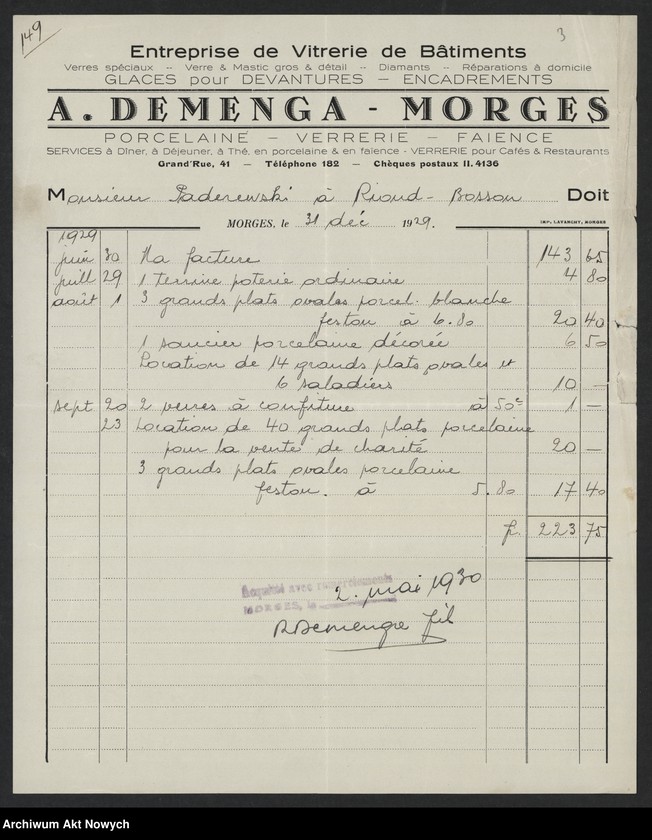 149
3
Entreprise de Vitrerie de Bâtiments
Verres spéciaux -- Verre & Mastic gros & détail -- Diamants -- Réparations à domicile
GLACES pour DEVANTURES — ENCADREMENTS
A. DEMENGA - MORGES
PORCELAINE — VERRERIE — FAIENCE
SERVICES à Dîner, à Déjeuner, à Thé, en porcelaine & en faïence - VERRERIE pour Cafés & Restaurants
Grand'Rue, 41 — Téléphone 182 — Chèques postaux II. 4136
Monsieur Paderewski à Riond-Bosson Doit
MORGES, le 31 déc 1929.
IMP. LAVANCHY, MORGES
1929
juin 30 Ma facture 143 65
juill 29 1 terrine poterie ordinaire 4 80
août 1 3 grands plats ovales porcel. blanche
feston à 6.80 20 40
1 saucier porcelaine décorée 6 50
Location de 14 grands plats ovales et
6 saladiers 10 —
sept 20 2 verres à confiture à 50c 1 —
23 Location de 40 grands plats porcelaine
pour la vente de charité 20 —
3 grands plats ovales porcelaine
feston. à 5.80 17 40
fr. 223 75
Acquitté avec remerciements
MORGES, le 2. mai 1930
Demenga fils
Archiwum Akt Nowych